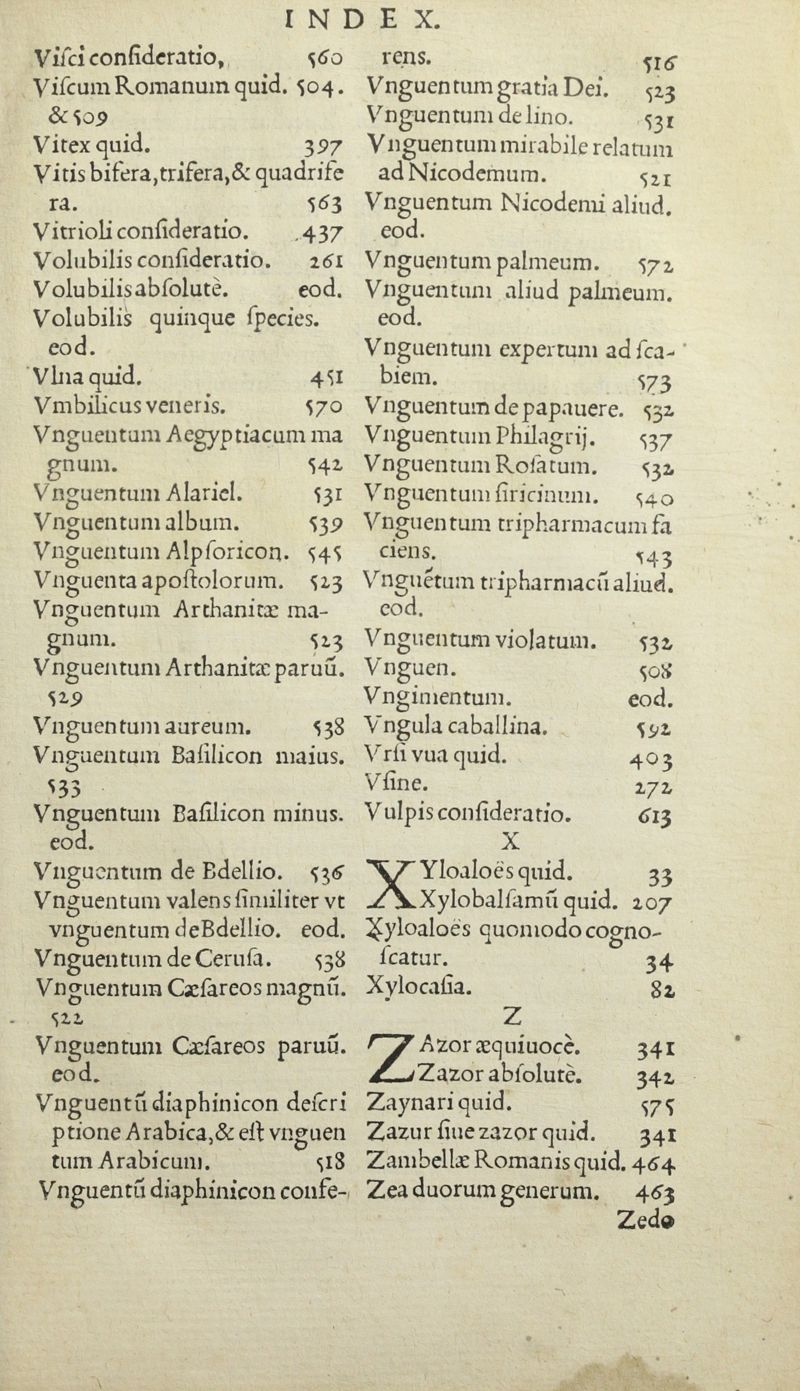 INDEX.
Viſci conſideratio, 560
Viſcum Romanum quid. 504.
& 509
Vitex quid. 397
Vitis bifera, trifera, & quadrife
ra. 563
Vitrioli conſideratio. 437
Volubilis conſideratio. 261
Volubilis abſolutè. eod.
Volubilis quinque ſpecies.
eod.
Vlna quid. 451
Vmbilicus veneris. 570
Vnguentum Aegyptiacum ma
gnum. 542
Vnguentum Alariel. 531
Vnguentum album. 539
Vnguentum Alpſoricon. 545
Vnguenta apoſtolorum. 523
Vnguentum Arthanitæ ma-
gnum. 523
Vnguentum Arthanitæ paruũ.
529
Vnguentum aureum. 538
Vnguentum Baſilicon maius.
533
Vnguentum Baſilicon minus.
eod.
Vnguentum de Bdellio. 536
Vnguentum valens ſimiliter vt
vnguentum de Bdellio. eod.
Vnguentum de Ceruſa. 538
Vnguentum Cæſareos magnũ.
522
Vnguentum Cæſareos paruũ.
eod.
Vnguentũ diaphinicon deſcri
ptione Arabica, & eſt vnguen
tum Arabicum. 518
Vnguentũ diaphinicon confe-
rens. 516
Vnguentum gratia Dei. 523
Vnguentum de lino. 531
Vnguentum mirabile relatum
ad Nicodemum. 521
Vnguentum Nicodemi aliud.
eod.
Vnguentum palmeum. 572
Vnguentum aliud palmeum.
eod.
Vnguentum expertum ad ſca-
biem. 573
Vnguentum de papauere. 532
Vnguentum Philagrij. 537
Vnguentum Roſatum. 532
Vnguentum ſiricinum. 540
Vnguentum tripharmacum fa
ciens. 543
Vnguẽtum tripharmacũ aliud.
eod.
Vnguentum violatum. 532
Vnguen. 508
Vngimentum. eod.
Vngula caballina. 592
Vrſi vua quid. 403
Vſine. 272
Vulpis conſideratio. 613
X
XYloaloës quid. 33
Xylobalſamũ quid. 207
Xyloaloës quomodo cogno-
ſcatur. 34
Xylocaſia. 82
Z
ZAzor æquiuocè. 341
Zazor abſolutè. 342
Zaynari quid. 575
Zazur ſiue zazor quid. 341
Zambellæ Romanis quid. 464
Zea duorum generum. 463
Zedo